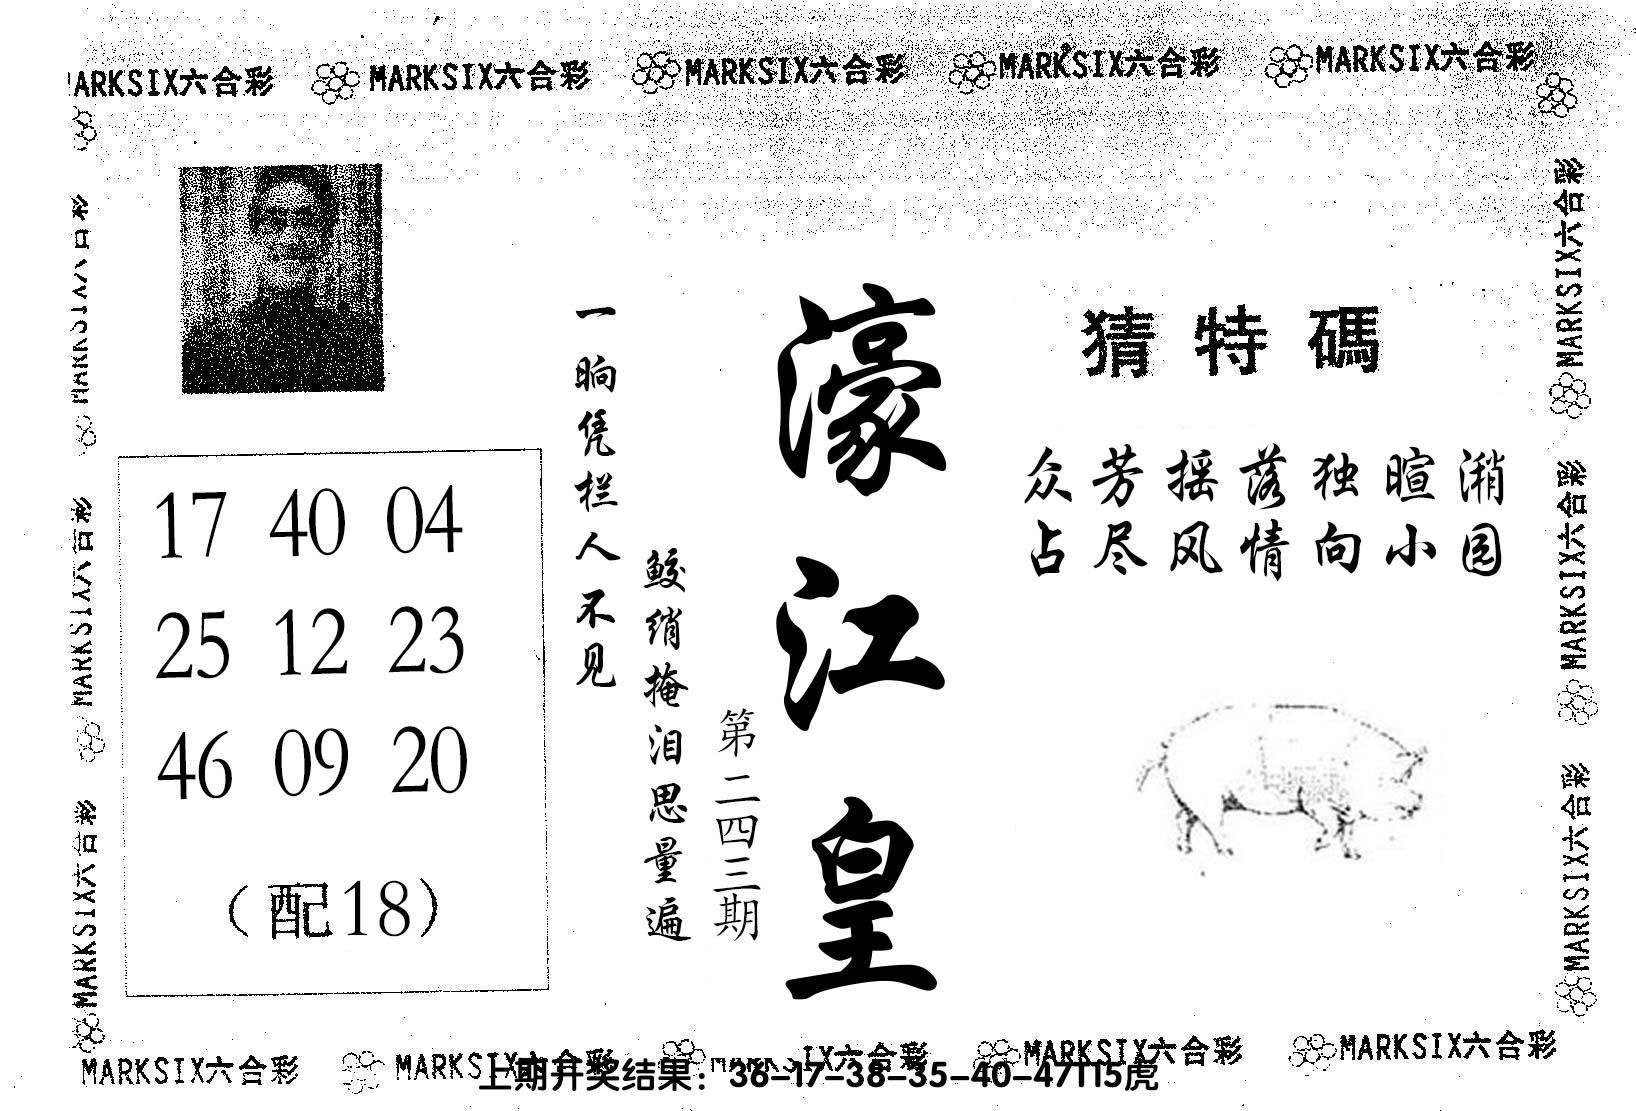 MARKSIX六合彩 MARKSIX六合彩 MARKSIX六合彩 MARKSIX六合彩
猜特碼
众芳摇落独暄潲
占尽风情向小园
濠江皇
第二四三期
一晌凭栏人不见
鲛绡掩泪思量遍
17 40 04
25 12 23
46 09 20
（配18）
MARKSIX六合彩
MARKSIX六合彩
MARKSIX六合彩
MARKSIX六合彩
MARKSIX六合彩
MARKSIX六合彩 MARKSIX六合彩 MARKSIX六合彩 MARKSIX六合彩
上期开奖结果：36-17-38-35-40-47T15虎